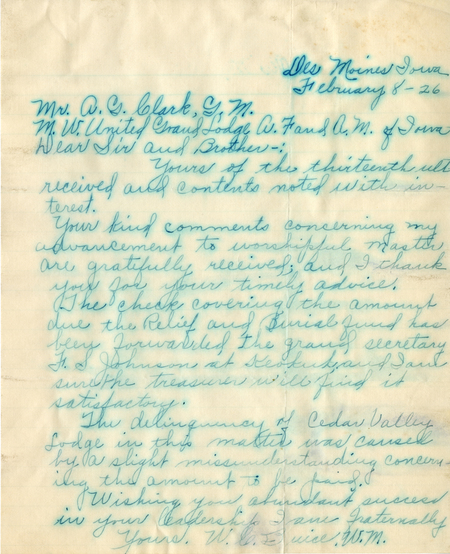 Des Moines Iowa
February 8-26
Mr. A. G. Clark, G. M.
M. W. United Grand Lodge A. F and A. M. of Iowa
Dear Sir and Brother-:
Yours of the thirteenth ult
received and contents noted with in-
terest.
Your kind comments concerning my
advancement to worshipful master
are gratefully received; and I thank
you for your timely advice.
The check covering the amount
due the Relief and Burial fund has
been forwarded the grand secretary
F. S Johnson at Keokuk, and I am
sure the treasurer will find it
satisfactory.
The delinquency of Cedar Valley
Lodge in this matter was caused
by a slight misunderstanding concern-
ing the amount to be paid.
Wishing you abundant success
in your leadership I am Fraternally
Yours. W. W.M.